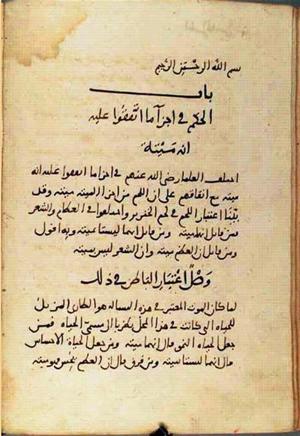 بسم الله الرحمن الرحيم
باب
الحكم في اجزآ ما اتفقوا عليه
انه ميتة
اختلف العلما رضي الله عنهم في اجزا ما اتفقوا عليه انه
ميتة مع اتفاقهم على ان اللحم من اجزا الميتة ميتة وقد
بيّنّا اعتبار اللحم في لحم الخنزير واختلفوا في العظام والشعر
فمن قايل انها ميتة ومن قايل انهما ليستا ميتة وبه اقول
ومن قايل ان العظم ميتة وان الشعر ليس بميتة
وصل اعتبار الناظر في ذلك
لما كان الموت المعتبر في هذه المسالة هو الطاري المزيل
للحياة التي كانت في هذا المحل نظرنا الى مسمى الحياة فمن
جعل الحياة النمو قال انهما ميتة ومن جعل الحياة الاحساس
قال انهما ليستا ميتة ومن فرق قال ان العظم يحس فهو ميتة